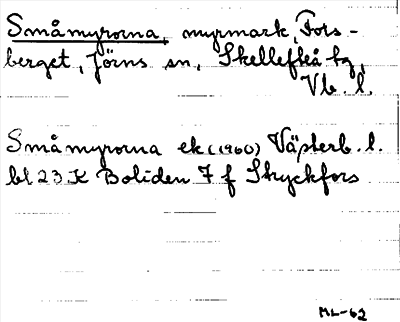 Småmyrorna, myrmark, Fors-
berget, Jörns sn, Skellefteå tg,
Vb. l.
Småmyrorna ek (1960) Västerb. l.
bl 23 K Boliden 7 f Stryckfors
ML-62